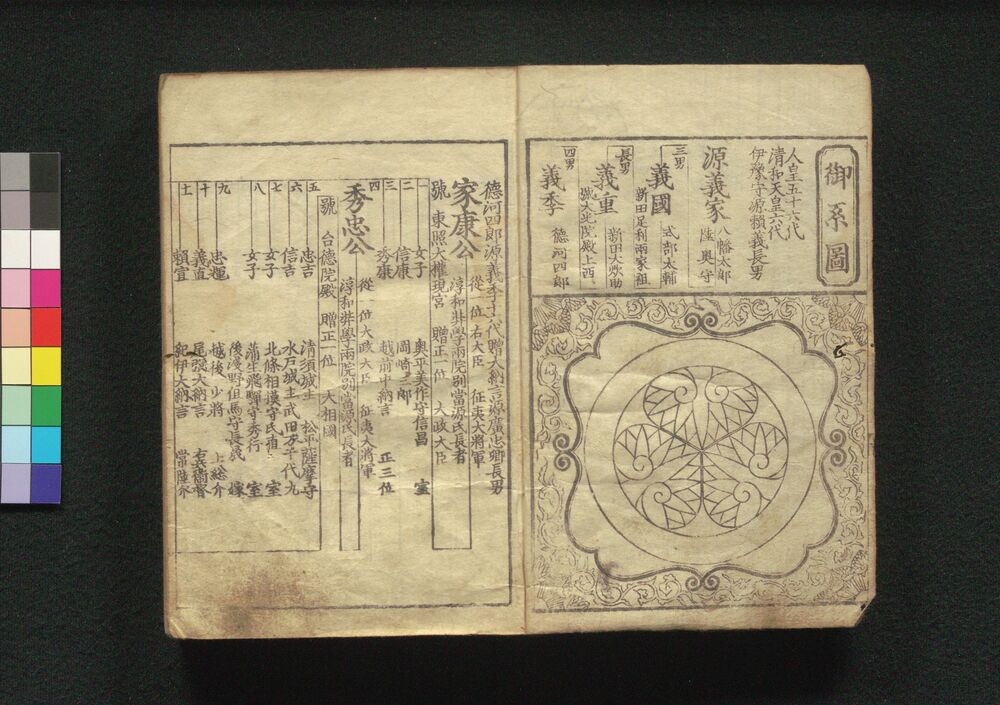 御系圖
人皇五十六代
清和天皇六代
伊豫守源頼義長男
源義家 八幡太郎
陸奥守
三男
義國 式部太輔
新田足利両家祖
長男
義重 新田大炊助
號大光院殿上西
四男
義季 德河四郎
德河四郎源義季十代贈大納言源廣忠卿長男
家康公 從一位右大臣 征夷大將軍
淳和弉學兩院別當源氏長者
號 東照大權現宮 贈正一位 大政大臣
一 女子 奥平美作守信昌 室
二 信康 岡崎三郎
三 秀康 越前中納言 正三位
四
秀忠公 從一位大政大臣 征夷大將軍
淳和弉學兩院別當源氏長者
號 台德院殿 贈正一位 大相國
五 忠吉 清須城主 松平薩摩守
六 信吉 水戸城主武田万千代丸
七 女子 北條相模守氏直 室
八 女子 蒲生飛騨守秀行 室
後淺野但馬守長晟 嫁
九 忠輝 越後少將 上総介
十 義直 尾張大納言 右兵衛督
十一 頼宣 紀伊大納言 常陸介